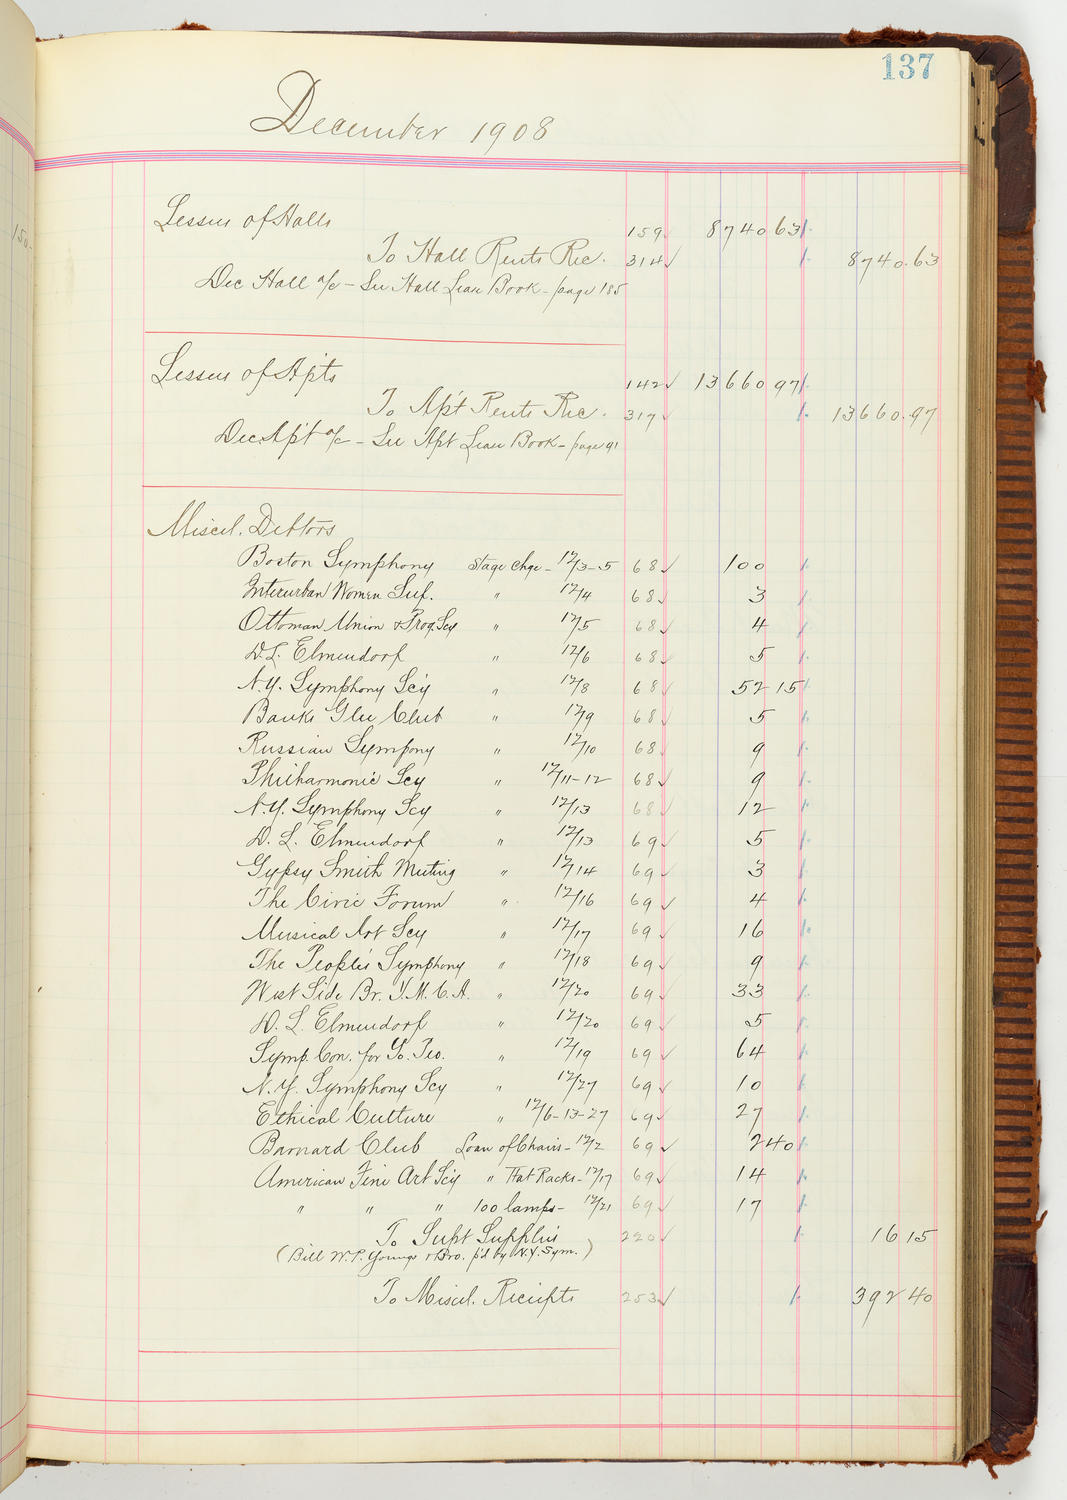 137
December 1908
150-
Lessees of Halls 159 8740 63
To Hall Rents Rec. 314 8740.63
Dec Hall a/c - See Hall Lease Book - page 185
Lessees of Apts 142 13660 97
To Apt Rents Rec. 317 13660.97
Dec Apt a/c - See Apt Lease Book - page 91
Miscel. Debtors
Boston Symphony Stage Chge - 12/3-5 68 100
Interurban Women Suf. " 12/4 68 3
Ottoman Union & Prog. Scy " 12/5 68 4
D.L. Elmendorf " 12/6 68 5
N.Y. Symphony Sc'y " 12/8 68 52 15
Banks Glee Club " 12/9 68 5
Russian Sympony " 12/10 68 9
Philharmonic Scy " 12/11-12 68 9
N.Y. Symphony Scy " 12/13 68 12
D. L. Elmendorf " 12/13 69 5
Gypsy Smith Meeting " 12/14 69 3
The Civic Forum " 12/16 69 4
Musical Art Scy " 12/17 69 16
The People's Symphony " 12/18 69 9
West Side Br. Y.M.C.A. " 12/20 69 33
D. L. Elmendorf " 12/20 69 5
Symp. Con. for Yo. Peo. " 12/19 69 64
N.Y. Symphony Scy " 12/27 69 10
Ethical Culture " 12/6-13-27 69 27
Barnard Club Loan of Chairs - 12/2 69 2 40
American Fine Art Scy " Hat Racks - 12/17 69 14
" " " 100 lamps - 12/21 69 17
To Supt Supplies 220 16 15
(Bill W.P. Youngs & Bro. p'd by N.Y. Sym.)
To Miscel. Receipts 253 392 40